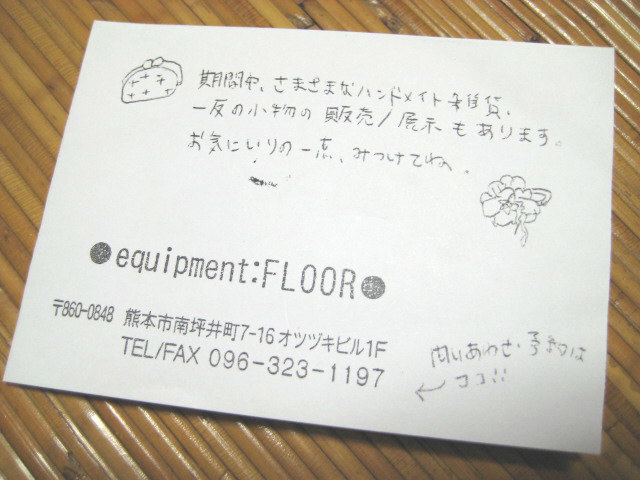 期間中、さまざまなハンドメイド雑貨、
一反の小物の 販売/展示 もあります。
お気にいりの一点、みつけてね。
●equipment:FLOOR●
〒860-0848 熊本市南坪井町7-16オツヅキビル1F
TEL/FAX 096-323-1197
問いあわせ・予約は
← ココ!!